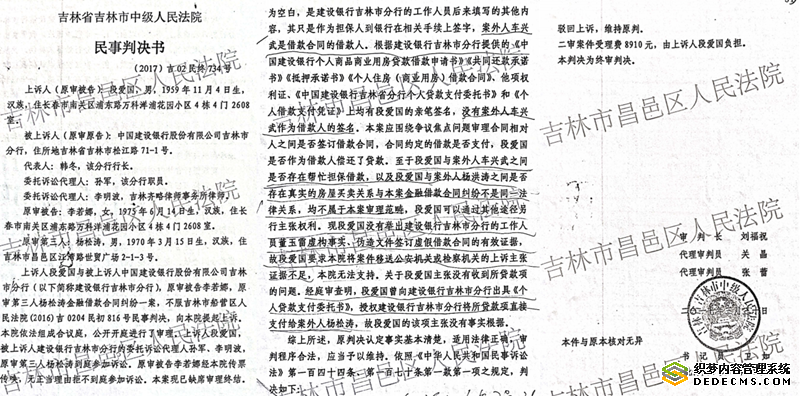 吉林省吉林市中级人民法院
民事判决书
(2017)吉02民终734号
上诉人(原审被告):段爱国,男,1959年11月4日生,
汉族,住长春市南关区浦东路万科洋浦花园小区4栋4门2608
室。
被上诉人(原审原告):中国建设银行股份有限公司吉林市
分行,住所地吉林省吉林市松江路71-1号。
代表人:韩冬,该分行行长。
委托诉讼代理人:孙军,该分行职员。
委托诉讼代理人:李明波,吉林齐略律师事务所律师。
原审被告:李若娜,女,1975年6月14日生,汉族,住长
春市南关区浦东路万科洋浦花园小区4栋4门2608室。
原审第三人:杨松涛,男,1970年3月15日生,汉族,住
吉林市昌邑区江湾路世贸广场2-1-3号。
上诉人段爱国与被上诉人中国建设银行股份有限公司吉林
市分行(以下简称建设银行吉林市分行),原审被告李若娜,原
审第三人杨松涛金融借款合同纠纷一案,不服吉林市船营区人
民法院(2016)吉0204民初816号民事判决,向本院提起上诉。
本院依法组成合议庭,公开开庭进行了审理。上诉人段爱国、
被上诉人建设银行吉林市分行的委托诉讼代理人孙军、李明波,
原审第三人杨松涛到庭参加诉讼。原审被告李若娜经本院传票
传唤,无正当理由拒不到庭参加诉讼。本案现已缺席审理终结。
为空白,是建设银行吉林市分行的工作人员后来填写的其他内
容,其只是作为担保人到银行在相关手续上签字,案外人车兴
武是借款合同的借款人。根据建设银行吉林市分行提供的《中
国建设银行个人商品商业用房贷款借款申请书》《共同还款承诺
书》《抵押承诺书》《个人住房(商业用房)借款合同》、他项权
利证、《中国建设银行吉林省分行个人贷款支付委托书》和《个
人借款支付凭证》上均有段爱国的亲笔签名,没有案外人车兴
武作为借款人的签名。本案应围绕争议焦点问题审理合同相对
人之间是否签订借款合同,合同约定的借款是否支付,段爱国
是否作为借款人偿还了贷款。至于段爱国与案外人车兴武之间
是否存在帮忙担保借款,以及段爱国与案外人杨洪涛之间是否
存在真实的房屋买卖关系与本案金融借款合同纠纷不是同一法
律关系,均不属于本案审理范畴,段爱国可以通过其他途径另
行主张权利。现段爱国没有举出建设银行吉林市分行的工作人
员董玉茜虚构事实、伪造文件签订虚假借款合同的有效证据,
故段爱国要求本院将案件移送公安机关或检察机关的上诉主张
证据不足,本院无法支持。关于段爱国主张没有收到所贷款项
的问题。经庭审查明,段爱国曾向建设银行吉林市分行出具《个
人贷款支付委托书》,授权建设银行吉林市分行将所贷款项直接
支付给案外人杨松涛,故段爱国的该项主张没有事实根据。
综上所述,原判决认定事实基本清楚,适用法律正确,审
判程序合法,应当予以维持。依照《中华人民共和国民事诉讼
法》第一百四十四条、第一百七十条第一款第一项之规定,判
决如下:
驳回上诉,维持原判。
二审案件受理费8910元,由上诉人段爱国负担。
本判决为终审判决。
审判长 刘福祝
代理审判员 关晶
代理审判员 张蕾
本件与原本核对无异
书记员 卫如
吉林市昌邑区人民法院
吉林市昌邑区人民法院
吉林市昌邑区人民法院
吉林市昌邑区人民法院
织梦内容管理系统
DEDECMS.COM